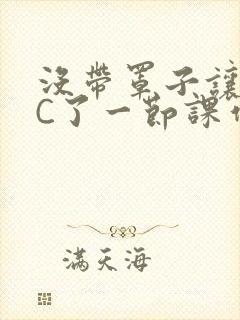 沒帶罩子讓
C了一節課作
滿天海